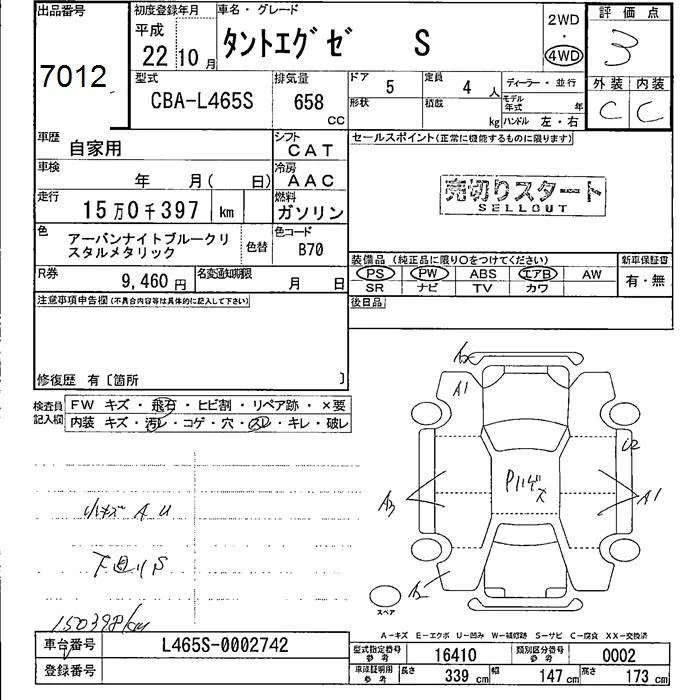 出品番号
7012
初度登録年月
平成
22 10月
車名・グレード
タントエグゼ S
2WD
・
4WD
評価点
3
外装 内装
C C
型式
CBA-L465S
排気量
658
CC
ドア
5
定員
4 人
形状
積載
kg
ディーラー・並行
モデル年式 年
ハンドル 左・右
車歴
自家用
シフト
CAT
車検
年 月( 日)
冷房
AAC
走行
15万0千397 km
燃料
ガソリン
色
アーバンナイトブルークリ
スタルメタリック
色替
色コード
B70
R券
9,460 円
名変通知期限
月 日
セールスポイント(正常に機能するものに限ります)
売切りスタート
SELLOUT
装備品 (純正品に限り〇をつけてください)
PS PW ABS エアB AW
SR ナビ TV カワ
新車保証書
有・無
後日品
注意事項申告欄(不具合内容等は具体的に記入して下さい)
修復歴 有〔箇所 〕
検査員
記入欄
FW キズ・飛石・ヒビ割・リペア跡・×要
内装 キズ・汚レ・コゲ・穴・スレ・キレ・破レ
小キズ A U
下回りS
150398km
A2
A1
U2
Pハゲキズ
A3
A1
A2
スペア
A-キズ E-エクボ U-凹み W-補修跡 S-サビ C-腐食 XX-交換済
車台番号
L465S-0002742
登録番号
型式指定番号
参考
16410
類別区分番号
参考
0002
車庫証明用
参考
長さ 339 cm
幅 147 cm
高さ 173 cm